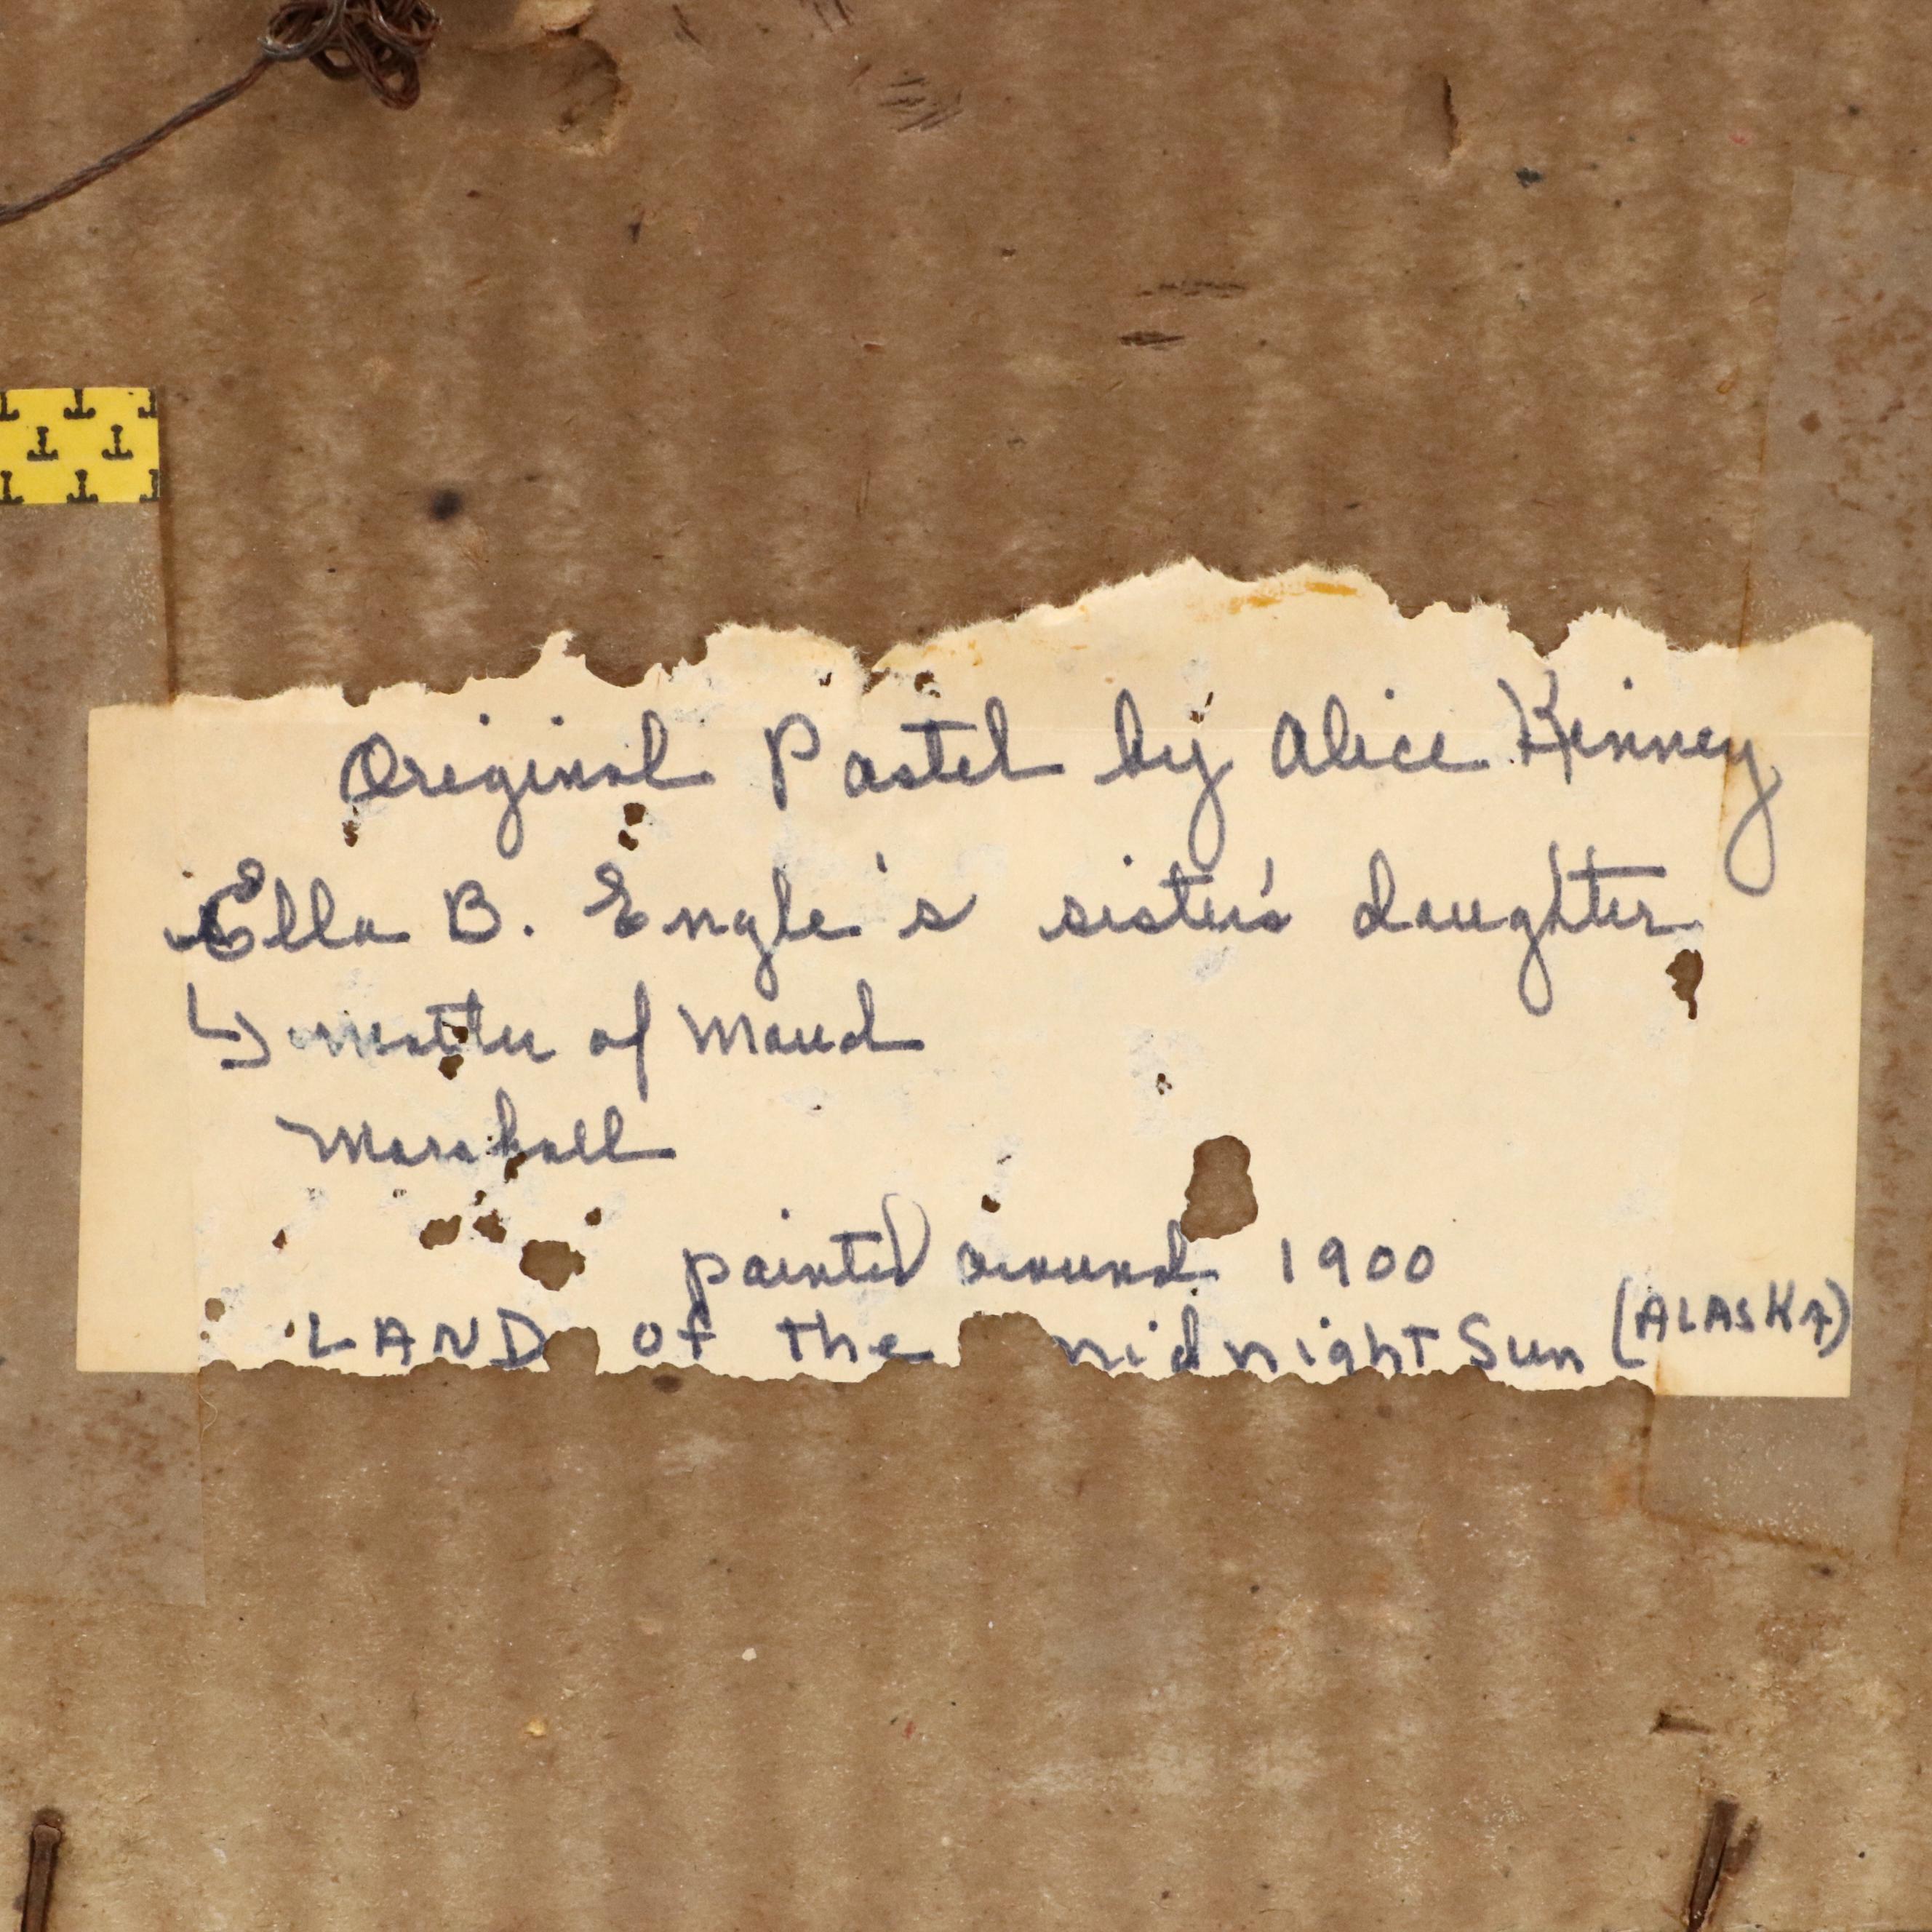 Original Pastel by Alice Kinney
Ella B. Engle's sister's daughter
↳ mother of Maud
Marshall
painted around 1900
LAND of the midnight Sun (ALASKA)